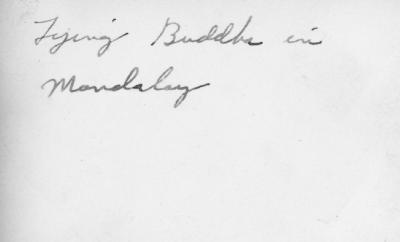 Lying Buddha in
Mandalay